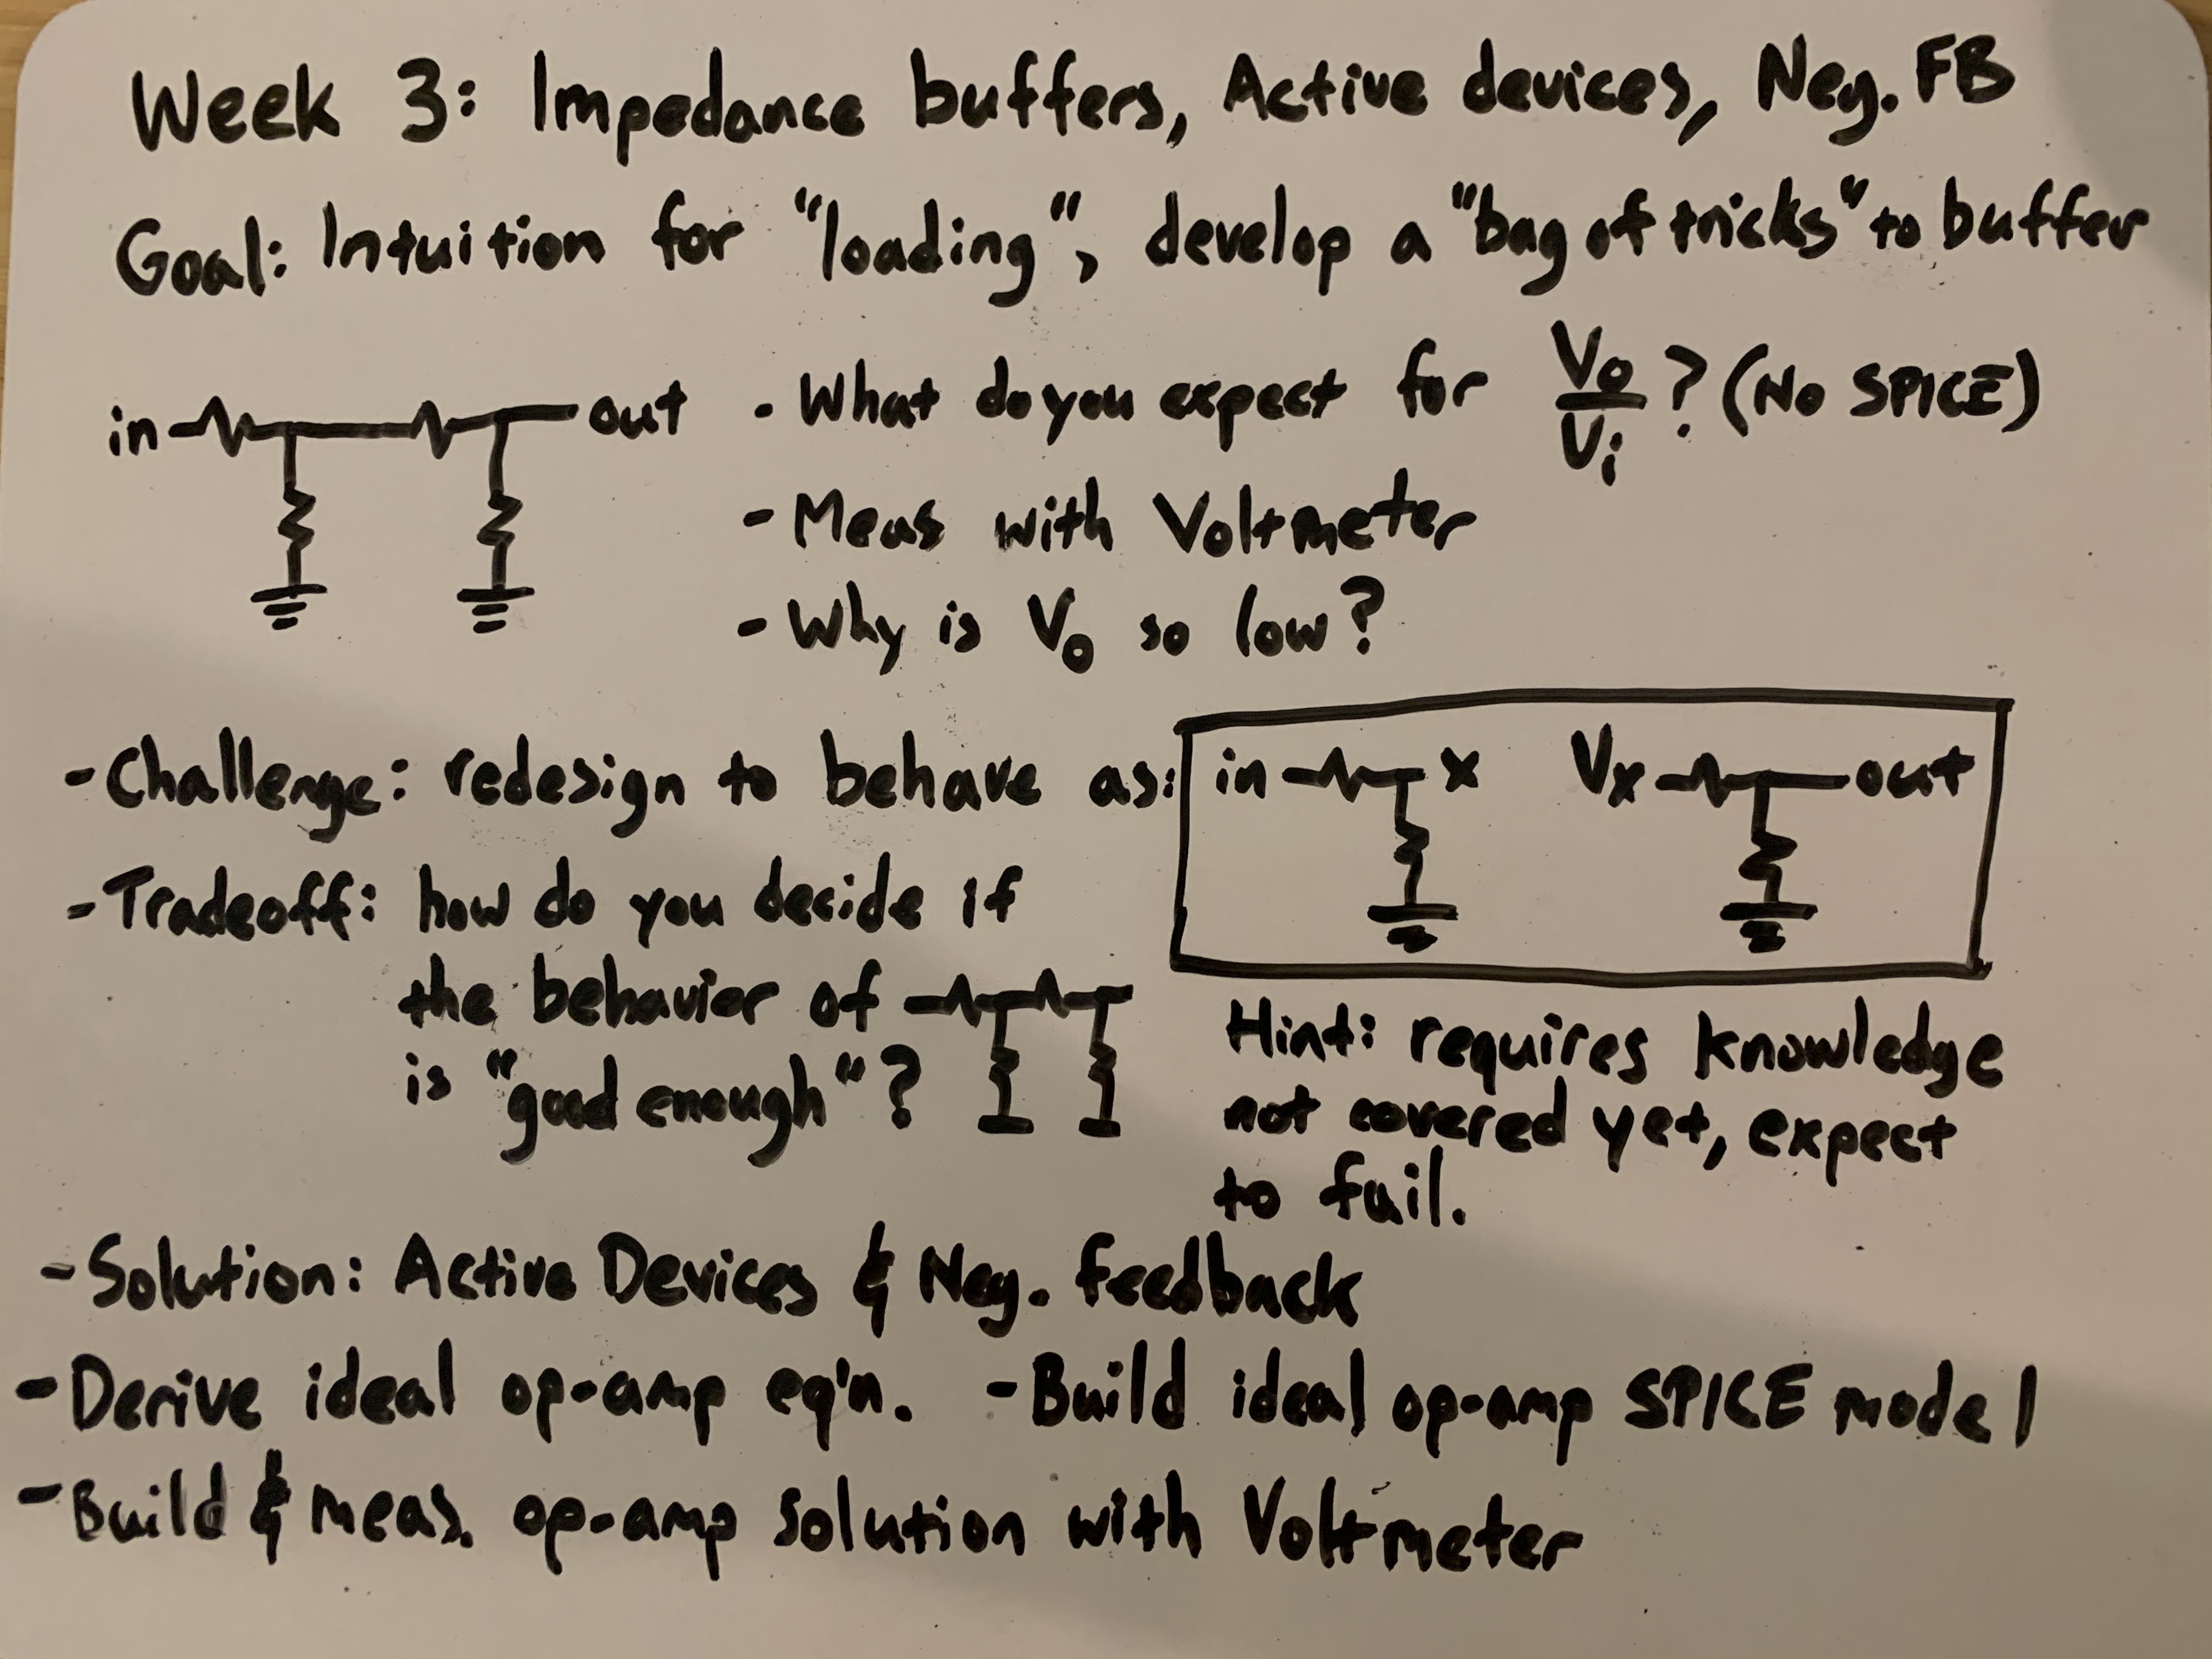 Week 3: Impedance buffers, Active devices, Neg. FB
Goal: Intuition for "loading", develop a "bag of tricks" to buffer
in out - What do you expect for Vo/Vi? (No SPICE)
- Meas with Voltmeter
- Why is Vo so low?
- Challenge: redesign to behave as: in x Vx out
- Tradeoff: how do you decide if
the behavior of
is "good enough"?
Hint: requires knowledge
not covered yet, expect
to fail.
- Solution: Active Devices & Neg. feedback
- Derive ideal op-amp eq'n. - Build ideal op-amp SPICE model
- Build & meas. op-amp solution with Voltmeter